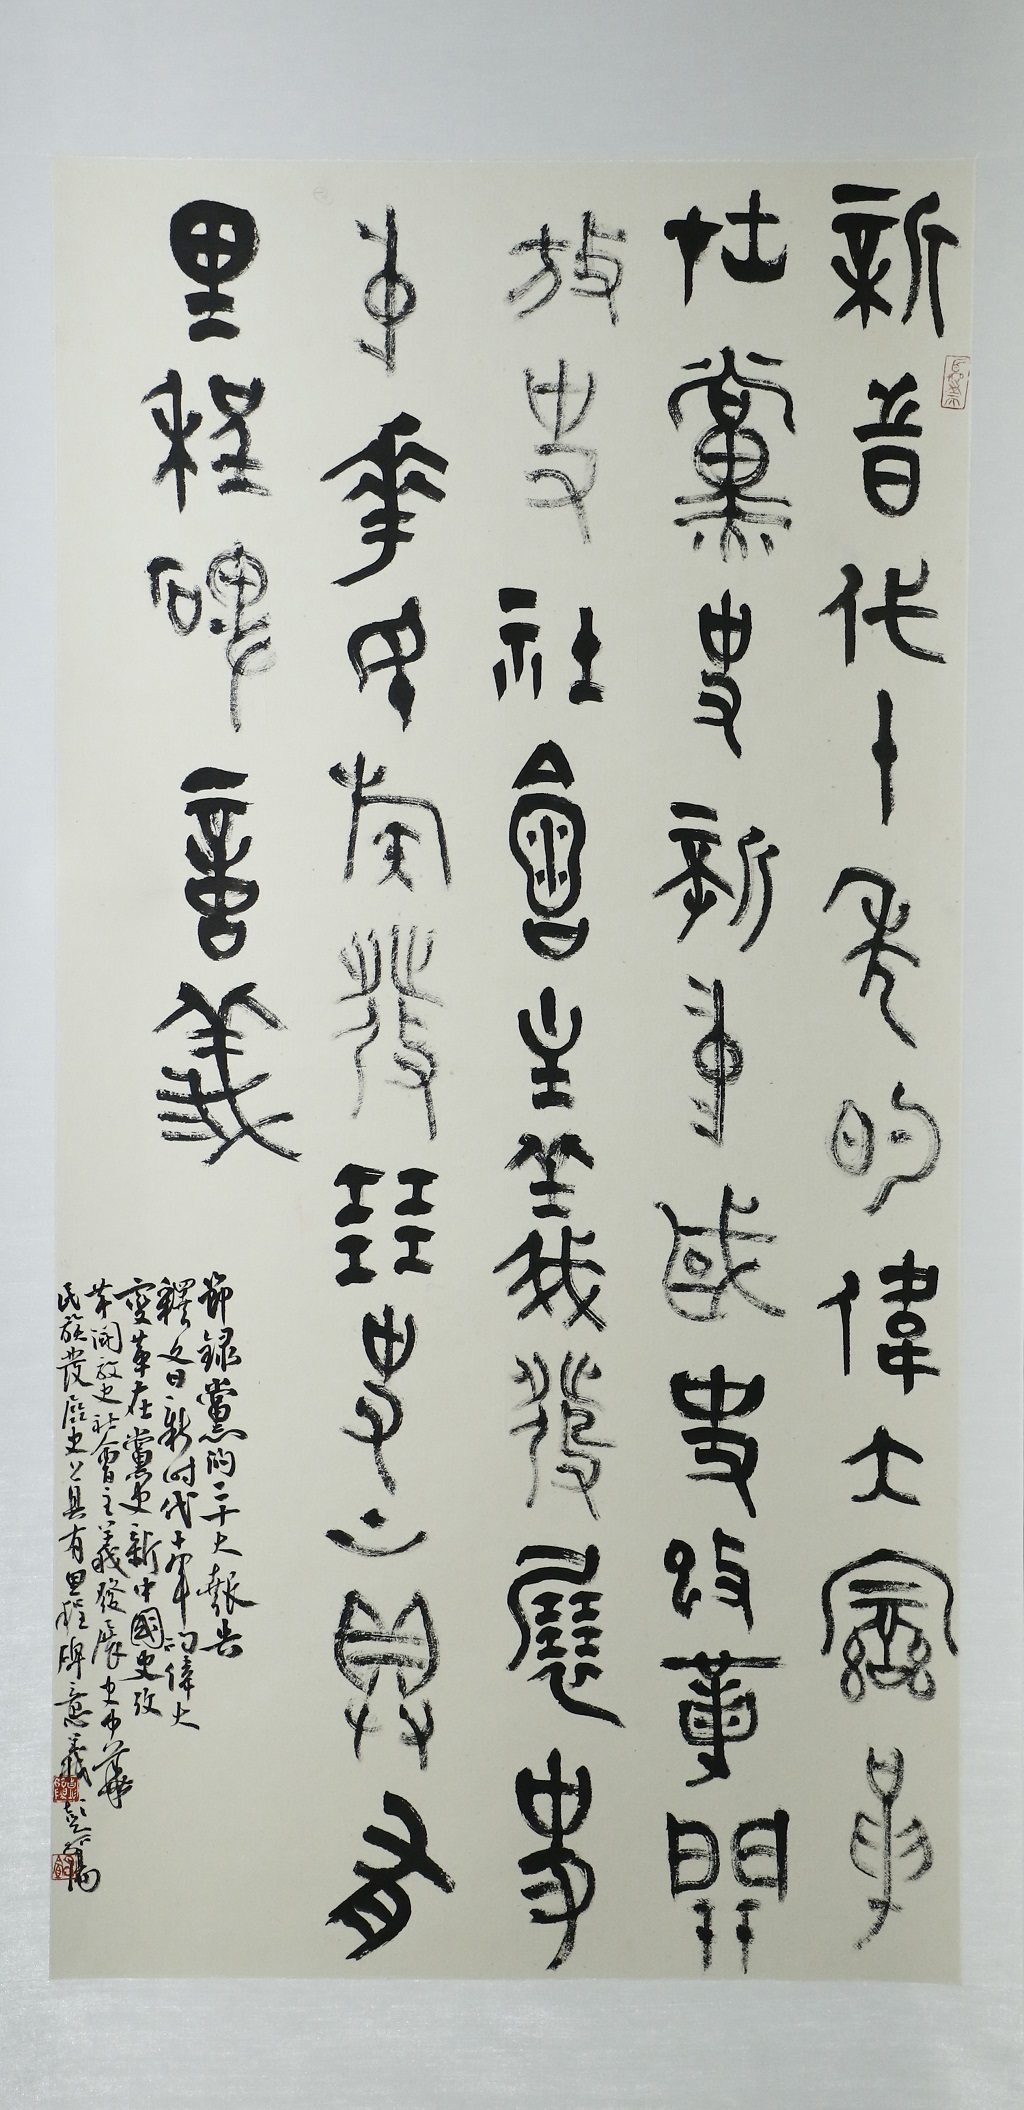 新時代十年的偉大變革
在黨史新中國史改革開
放史社會主義發展史
中華民族發展史上具有
里程碑意義
節録黨的二十大報告
釋文曰新時代十年的偉大
變革在黨史新中國史改
革開放史社會主義發展史中華
民族發展史上具有里程碑意義